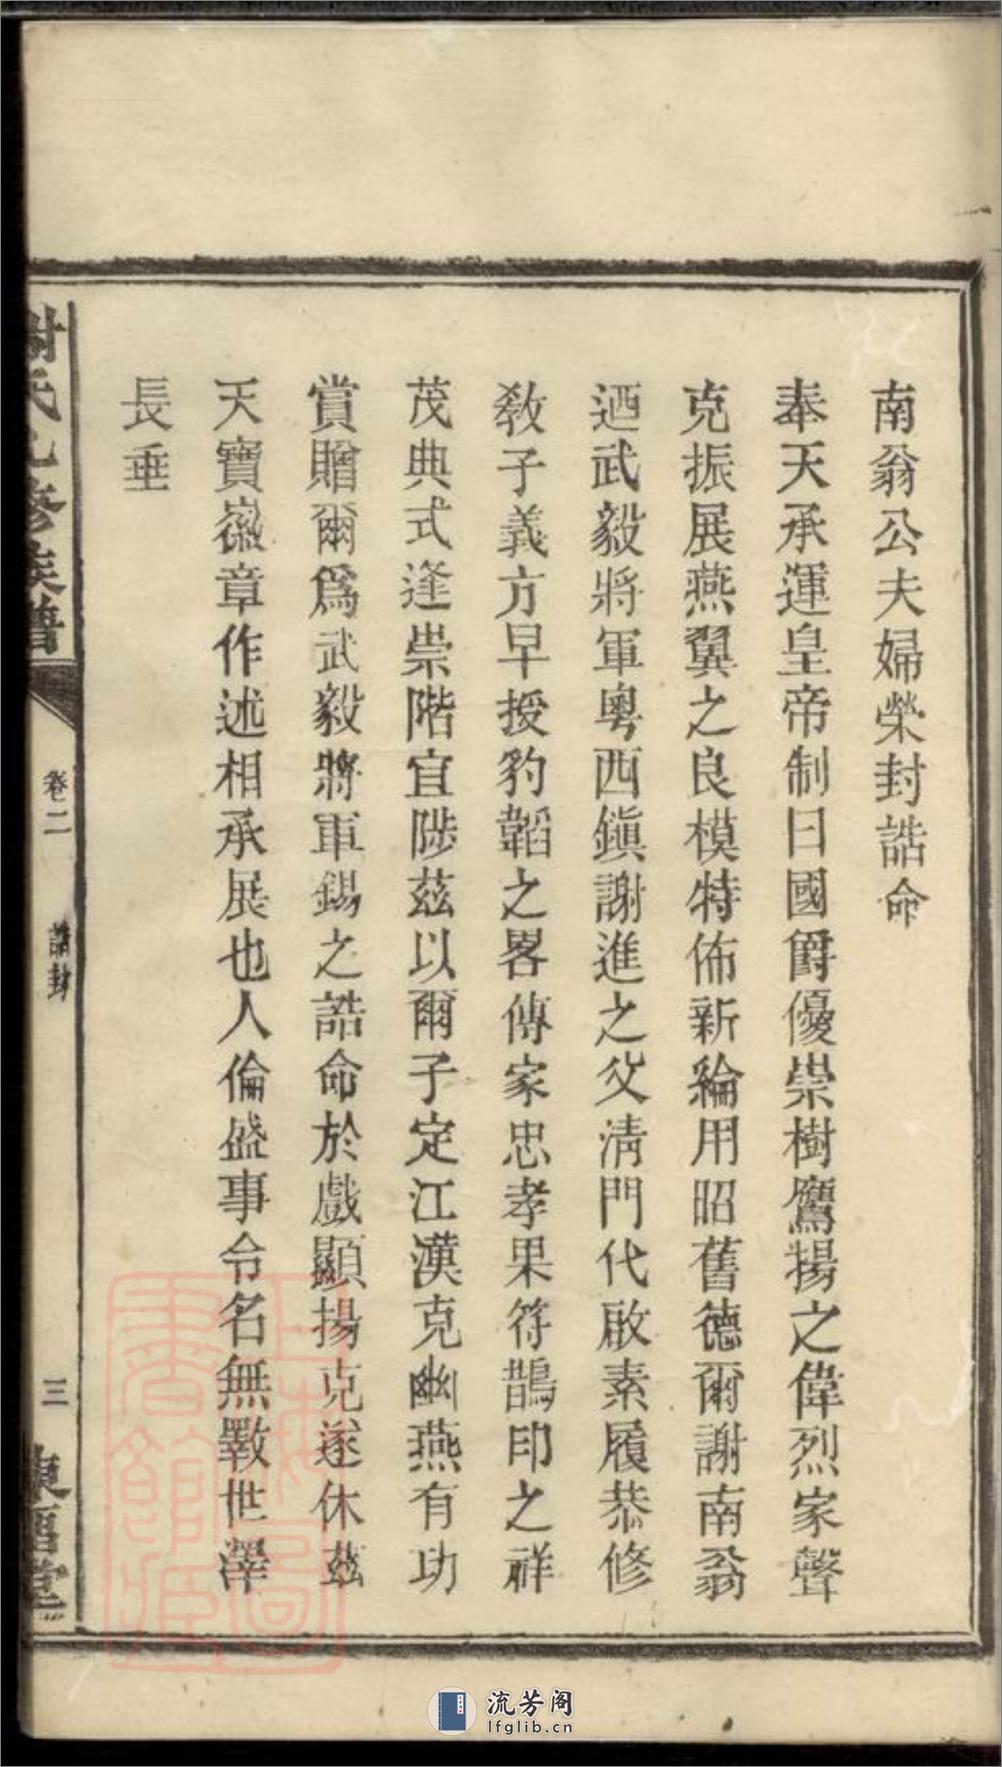 南翁公夫婦榮封誥命
奉天承運皇帝制曰國爵優崇樹鷹揚之偉烈家聲
克振展燕翼之良模特佈新綸用昭舊德爾謝南翁
迺武毅將軍粵西鎭謝進之父淸門代啟素履恭修
敎子義方早授豹韜之畧傳家忠孝果符鵲印之祥
茂典式逢崇階宜陟茲以爾子定江漢克幽燕有功
賞贈爾爲武毅將軍錫之誥命於戲顯揚克遂休茲
天寶徽章作述相承展也人倫盛事令名無斁世澤
長垂
謝氏九修族譜
卷二
誥封
三
東山堂
上海圖書館藏
流芳阁
lfglib.cn